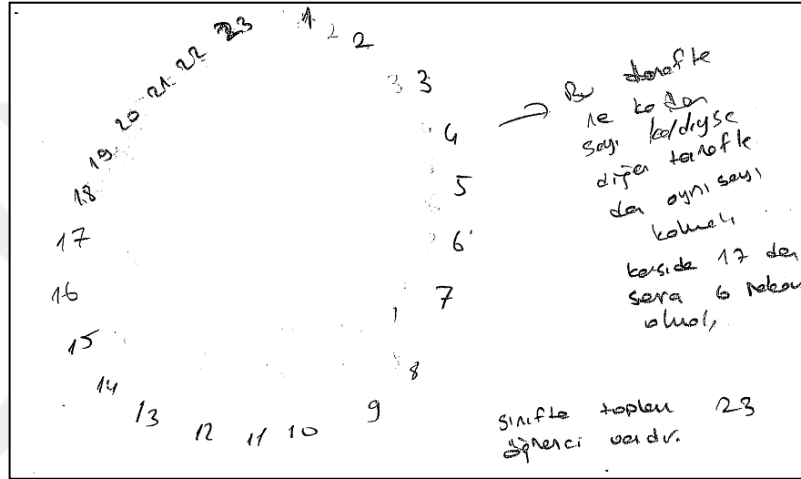 1
2
2
3
3
4
5
6
7
8
9
10
11
12
13
14
15
16
17
18
19
20
21
22
23
→ Bu tarafta
ne kadar
sayı kaldıysa
diğer tarafta
da aynı sayı
kalmalı
karşıda 17 den
sonra 6 rakam
olmalı,
sınıfta toplam 23
öğrenci vardır.